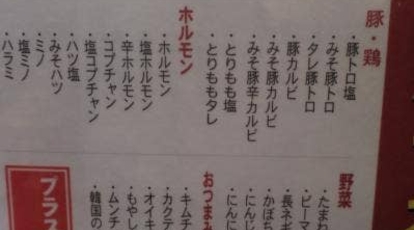 豚・鶏
・豚トロ塩
・みそ豚トロ
・タレ豚トロ
・豚カルビ
・みそ豚カルビ
・みそ豚辛カルビ
・とりもも塩
・とりももタレ
ホルモン
・ホルモン
・塩ホルモン
・辛ホルモン
・コプチャン
・塩コプチャン
・ハツ塩
・みそハツ
・ミノ
・塩ミノ
・ハラミ
野菜
・たまね
・ピーマ
・長ネギ
・かぼち
・にんじ
・にんに
おつまみ
・キムチ
・カクテ
・オイキ
・もやし
・ムンチ
・韓国の
プラス